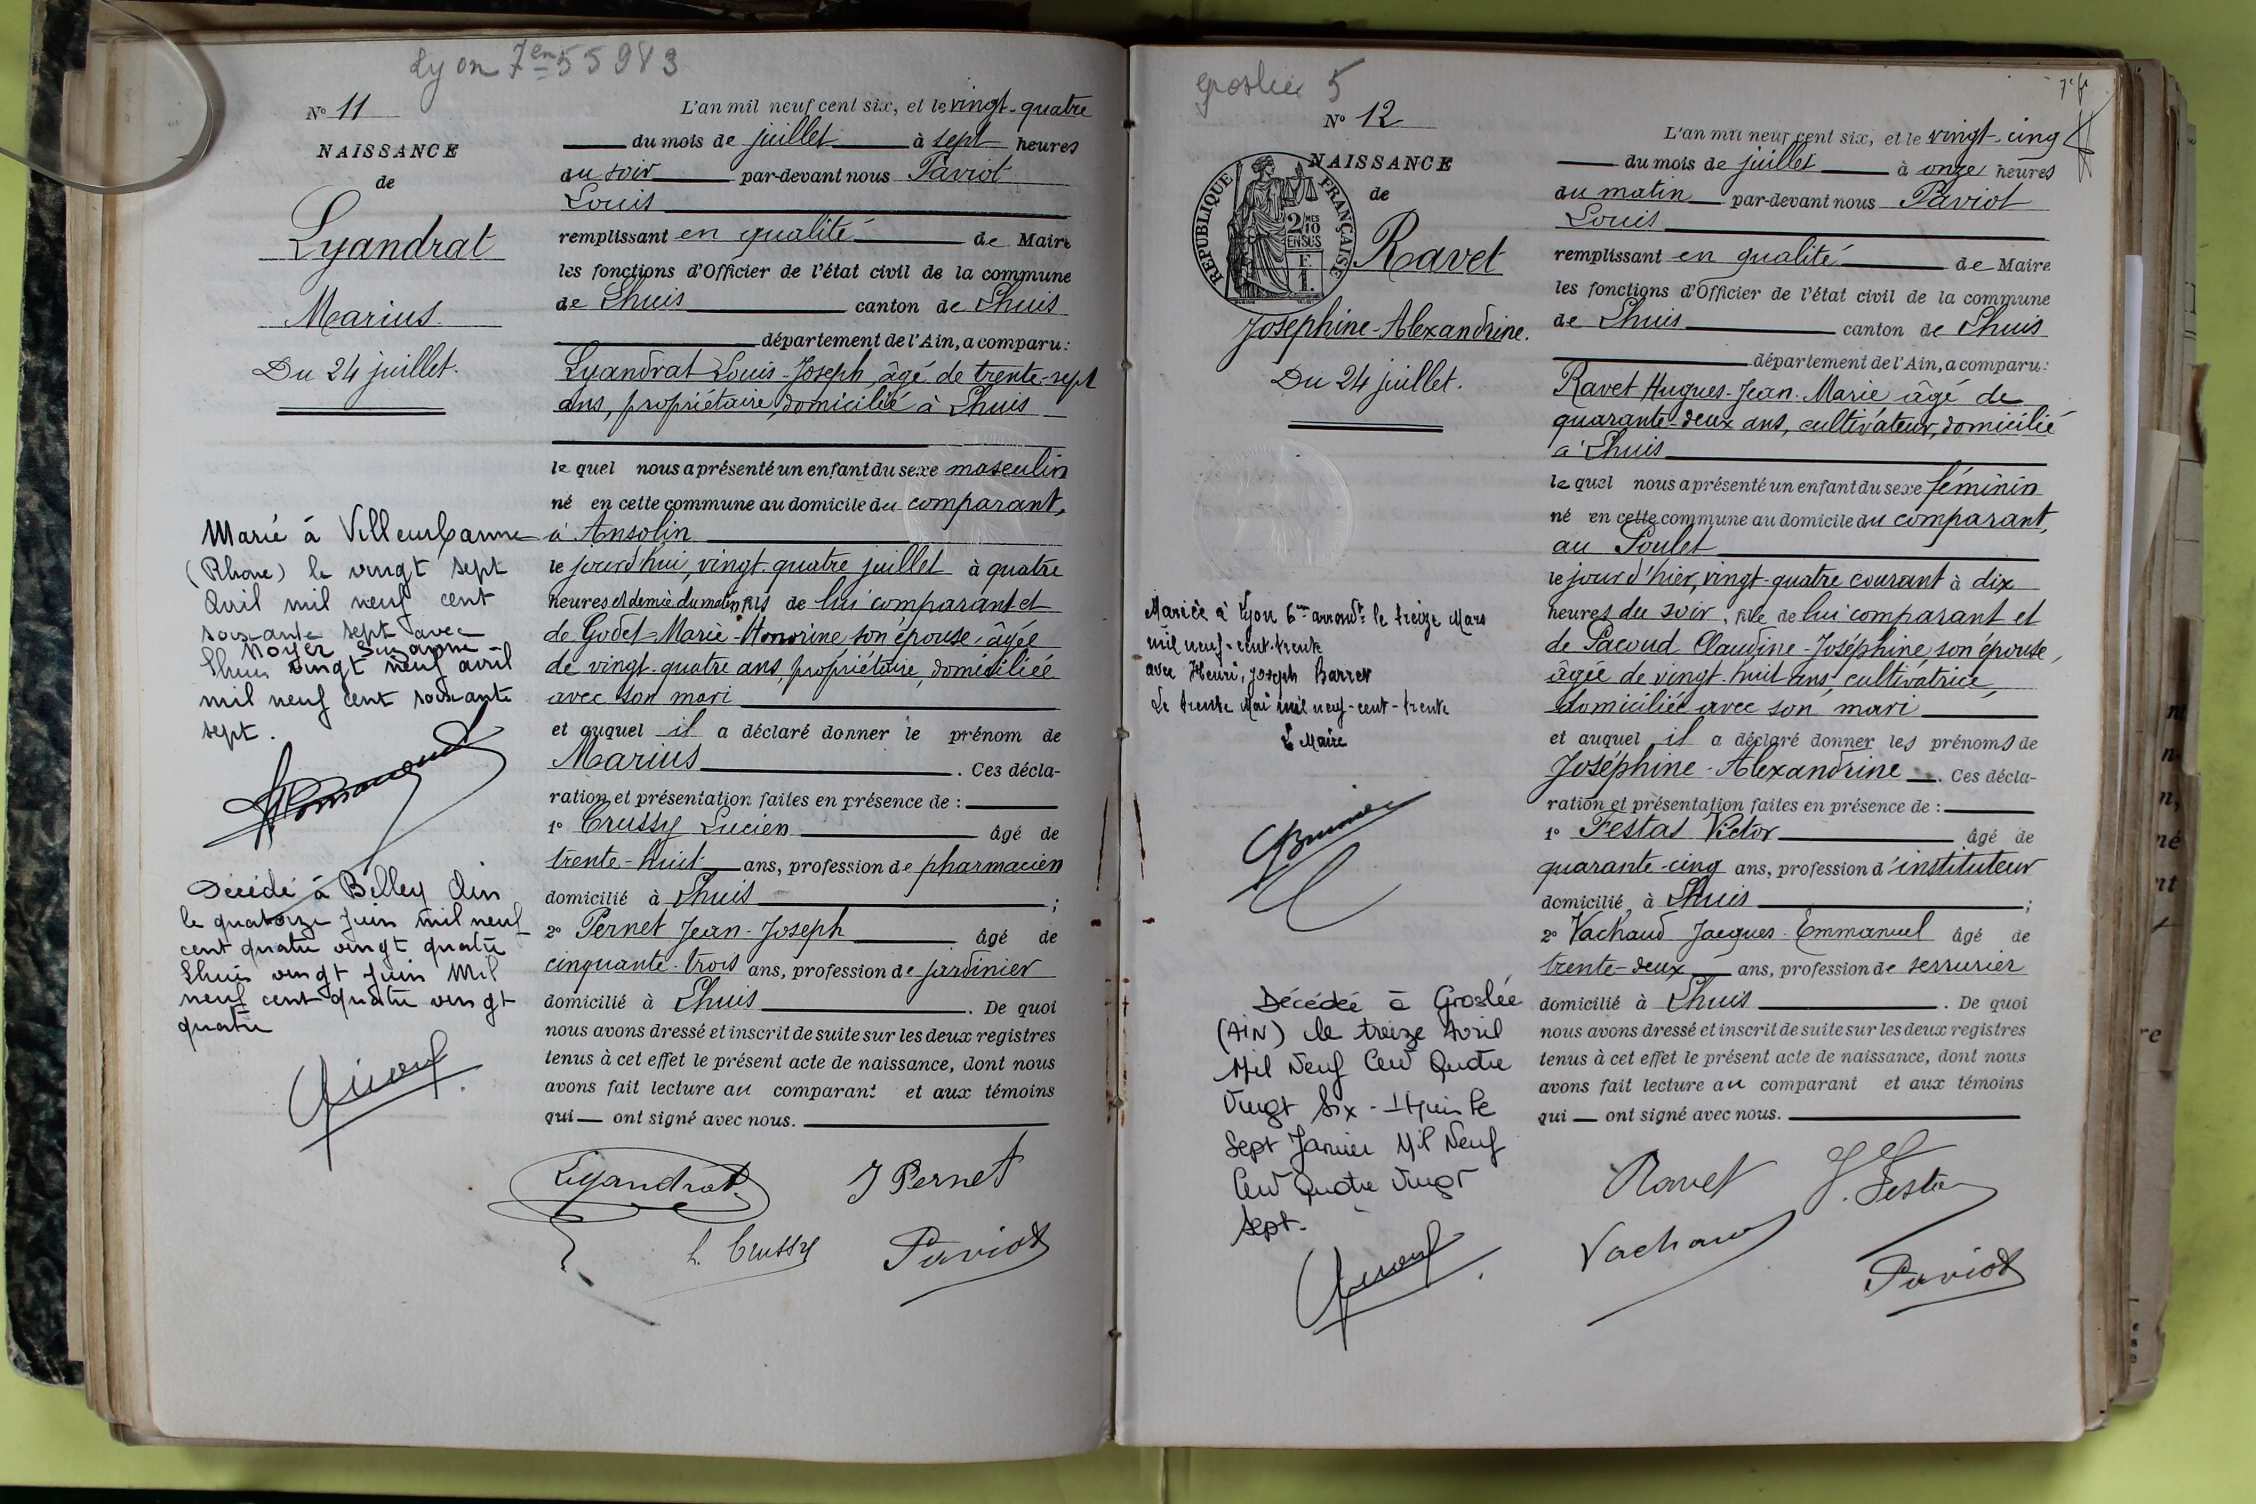 Lyon 7em 55983
N° 11
NAISSANCE
de
Lyandrat
Marius
Du 24 juillet.
Marié à Villeurbanne
(Rhone) le vingt sept
Avril mil neuf cent
soixante sept avec
Noyer Suzanne -
Lhuis vingt neuf avril
mil neuf cent soixante
sept.
Décédé à Belley Ain
le quatorze Juin mil neuf
cent quatre vingt quatre
Lhuis vingt Juin Mil
neuf cent quatre vingt
quatre
L'an mil neuf cent six, et le vingt-quatre
du mois de juillet à sept heures
du soir par-devant nous Paviot
Louis
remplissant en qualité de Maire
les fonctions d'Officier de l'état civil de la commune
de Lhuis canton de Lhuis
département de l'Ain, a comparu:
Lyandrat Louis-Joseph, âgé de trente-sept
ans, propriétaire, domicilié à Lhuis
le quel nous a présenté un enfant du sexe masculin
né en cette commune au domicile du comparant,
à Ansolin
le jourd'hui, vingt-quatre juillet à quatre
heures et demie du matin, fils de lui comparant et
de Godet-Marie-Honorine, son épouse, âgée
de vingt-quatre ans, propriétaire, domiciliée
avec son mari
et auquel il a déclaré donner le prénom de
Marius. Ces décla-
ration et présentation faites en présence de :
1° Crussy Lucien âgé de
trente-huit ans, profession de pharmacien
domicilié à Lhuis ;
2° Pernet Jean-Joseph âgé de
cinquante-trois ans, profession de jardinier
domicilié à Lhuis. De quoi
nous avons dressé et inscrit de suite sur les deux registres
tenus à cet effet le présent acte de naissance, dont nous
avons fait lecture au comparant et aux témoins
qui — ont signé avec nous.
Lyandrat J Pernet
L. Crussy Paviot
Groslée 5
N° 12
NAISSANCE
de
RÉPUBLIQUE FRANÇAISE
2/10 MES
EN SUS
F.
1.
Ravet
Joséphine-Alexandrine.
Du 24 juillet.
Mariée à Lyon 6me arrondt le treize Mars
mil neuf-cent-trente
avec Henri, Joseph Barret
Le trente Mai mil neuf-cent-trente
Le Maire
Décédée à Groslée
(AIN) le treize Avril
Mil Neuf Cent Quatre
Vingt Six - Lhuis le
Sept Janvier Mil Neuf
Cent Quatre Vingt
Sept.
L'an mil neuf cent six, et le vingt-cinq
du mois de juillet à onze heures
du matin par-devant nous Paviot
Louis
remplissant en qualité de Maire
les fonctions d'Officier de l'état civil de la commune
de Lhuis canton de Lhuis
département de l'Ain, a comparu:
Ravet Hugues-Jean-Marie âgé de
quarante-deux ans, cultivateur, domicilié
à Lhuis
le quel nous a présenté un enfant du sexe féminin
né en cette commune au domicile du comparant,
au Poulet
le jour d'hier, vingt-quatre courant à dix
heures du soir, fille de lui comparant et
de Pacoud Claudine-Joséphine son épouse,
âgée de vingt-huit ans, cultivatrice,
domiciliée avec son mari
et auquel il a déclaré donner les prénoms de
Joséphine-Alexandrine. Ces décla-
ration et présentation faites en présence de :
1° Festas Victor âgé de
quarante-cinq ans, profession d'instituteur
domicilié à Lhuis ;
2° Vachaud Jacques-Emmanuel âgé de
trente-deux ans, profession de serrurier
domicilié à Lhuis. De quoi
nous avons dressé et inscrit de suite sur les deux registres
tenus à cet effet le présent acte de naissance, dont nous
avons fait lecture au comparant et aux témoins
qui — ont signé avec nous.
Ravet
Vachaud
Paviot